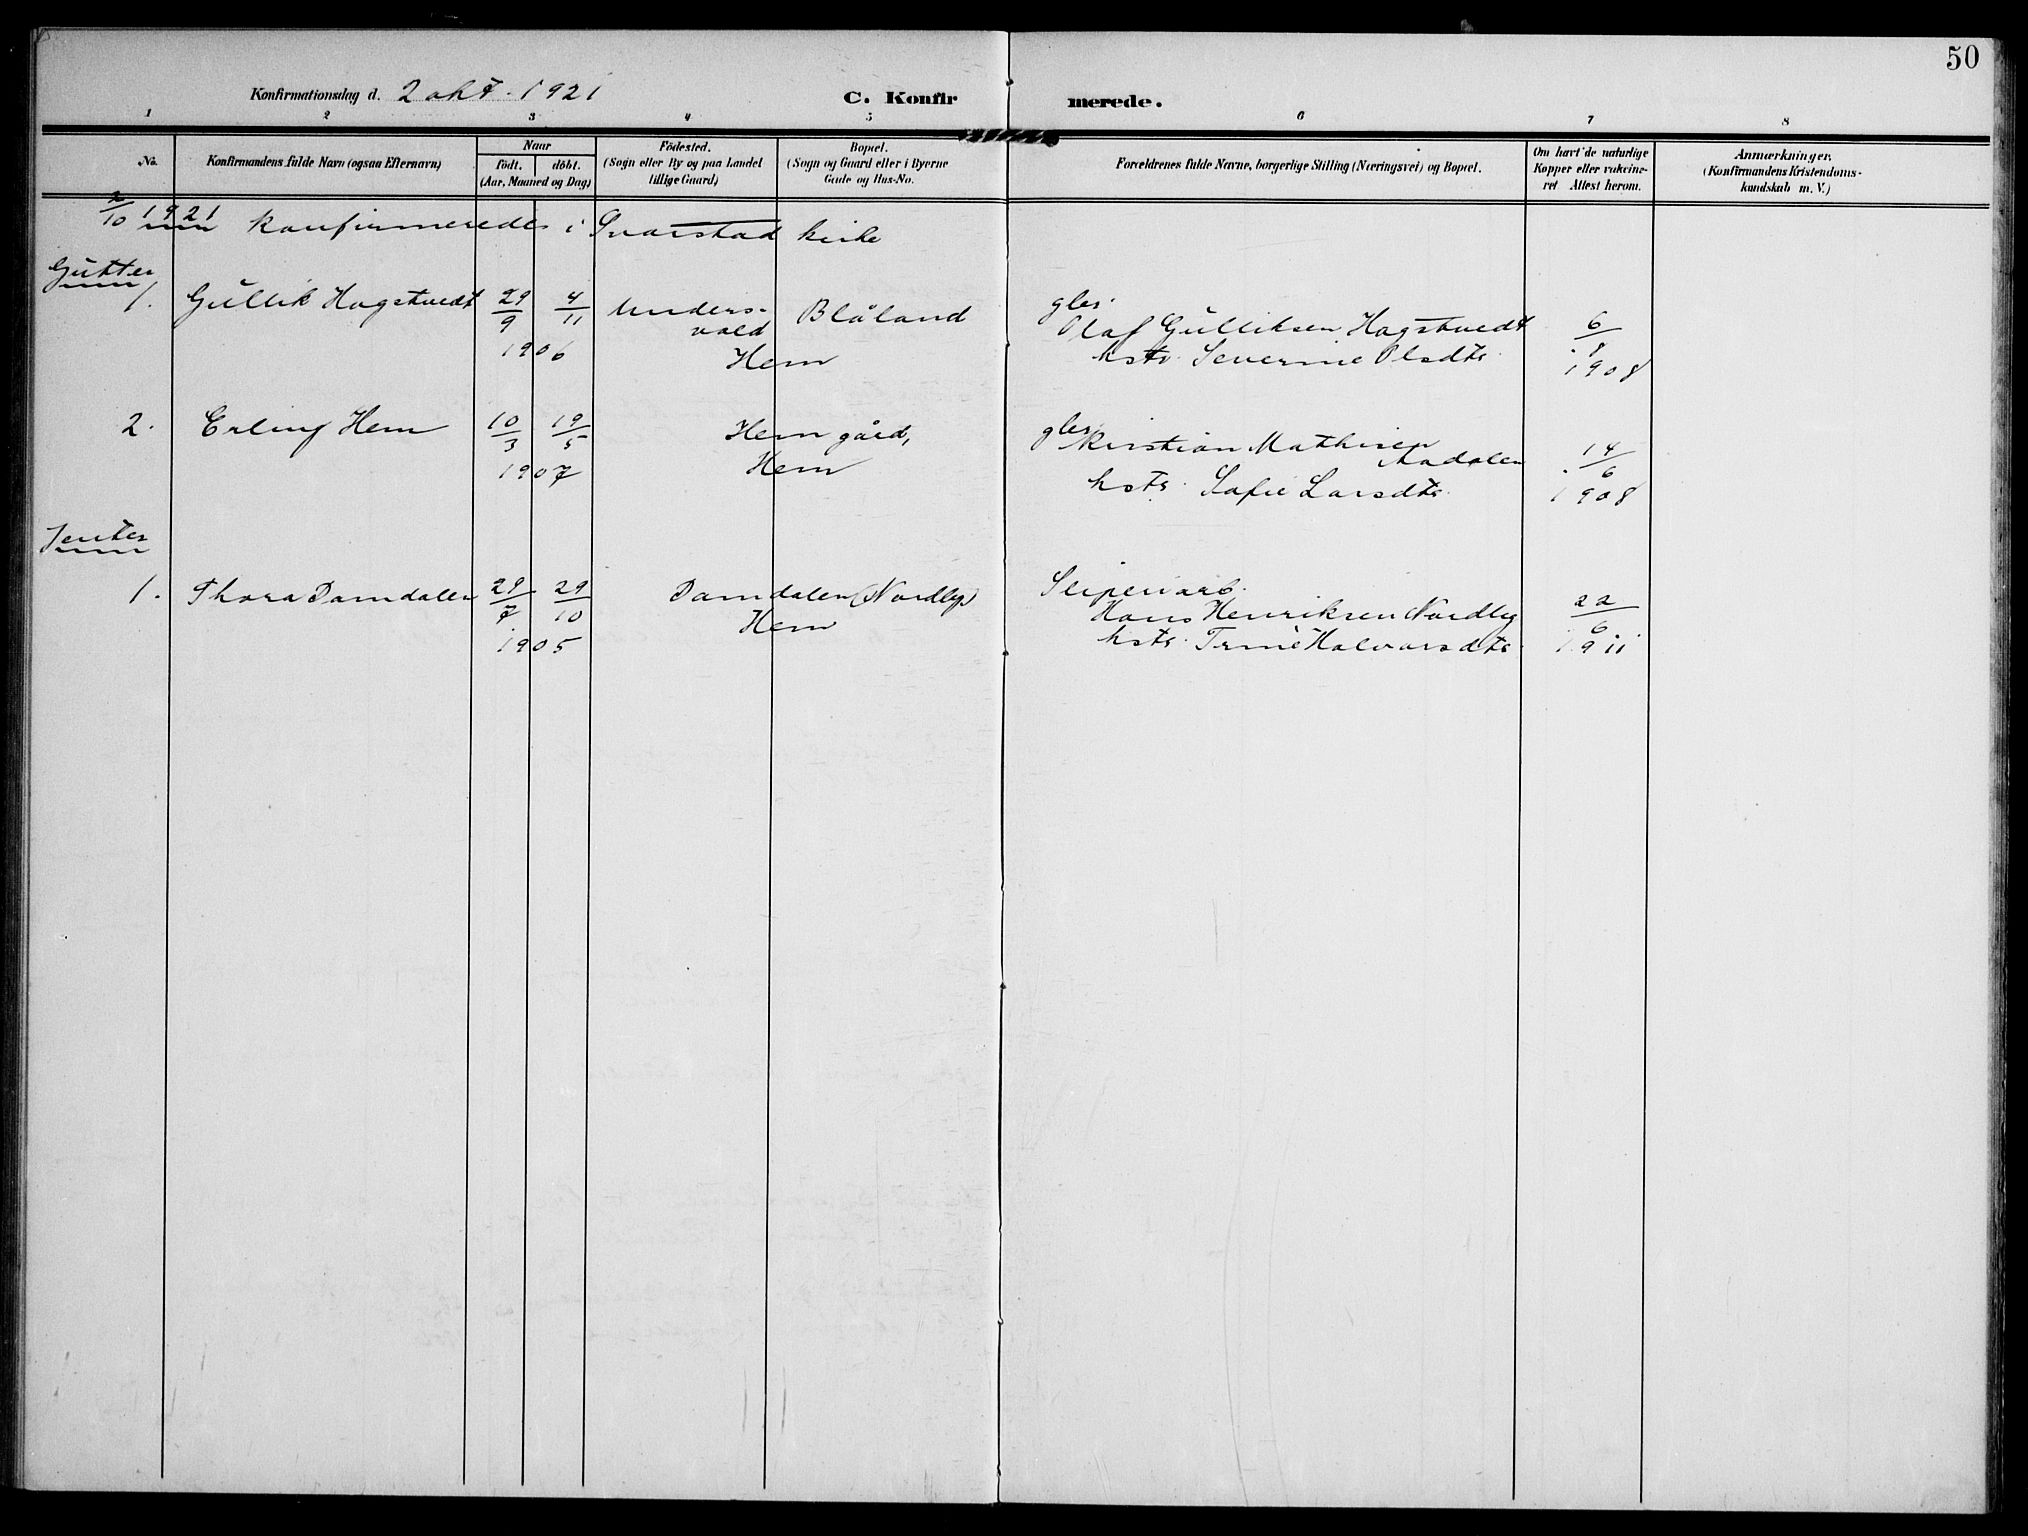 50
Konfirmationsdag d. 2 okt. 1921
C. Konfirmerede.
1 2 3 4 5 6 7 8
No.
Konfirmandens fulde Navn (ogsaa Efternavn)
Naar
födt. döbt.
(Aar, Maaned og Dag)
Födested.
(Sogn eller By og paa Landet
tillige Gaard)
Bopæl.
(Sogn og Gaard eller i Byerne
Gade og Hus-No.
Forældrenes fulde Navne, borgerlige Stilling (Næringsvei) og Bopæl.
Om havt de naturlige
Kopper eller vakcine-
ret Attest herom.
Anmærkninger.
(Konfirmandens Kristendoms-
kundskab m. V.)
2/10 1921 konfirmeredes i Svarstad kirke
Gutter
1. Gullik Hagstvedt 29/9 4/11 Unders- Blåland gbr.
vald Olaf Gulliksen Hagstvedt 6/8
1906 Hem hstr. Severine Olsdtr. 1908
2. Erling Hem 10/3 19/5 Hem gård, gbr. Kristian Mathisen
1907 Hem Aadalen 14/6
hstr. Sofie Larsdtr. 1908
Jenter
1. Thora Damdalen 29/7 29/10 Damdalen (Nordby) Sliperiarb.
Hem Hans Henriksen Nordby 22/6
1905 hstr. Trine Halvorsdtr. 1911